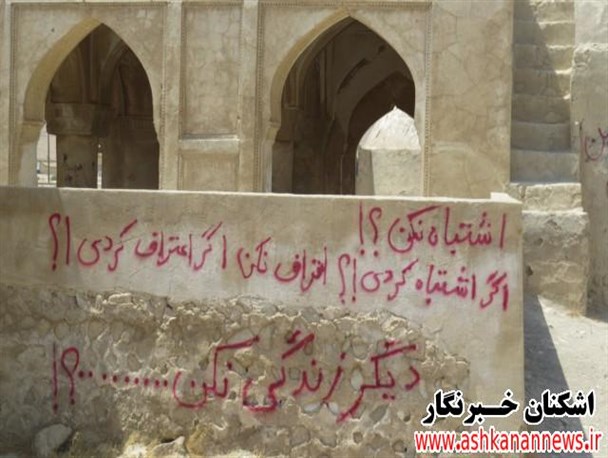 اشتباه نکن ؟!
اگر اشتباه کردی !؟ اعتراف نکن اگر اعتراف کردی !؟
دیگر زندگی نکن ..........؟!
اشکنان خبرنگار
www.ashkanannews.ir